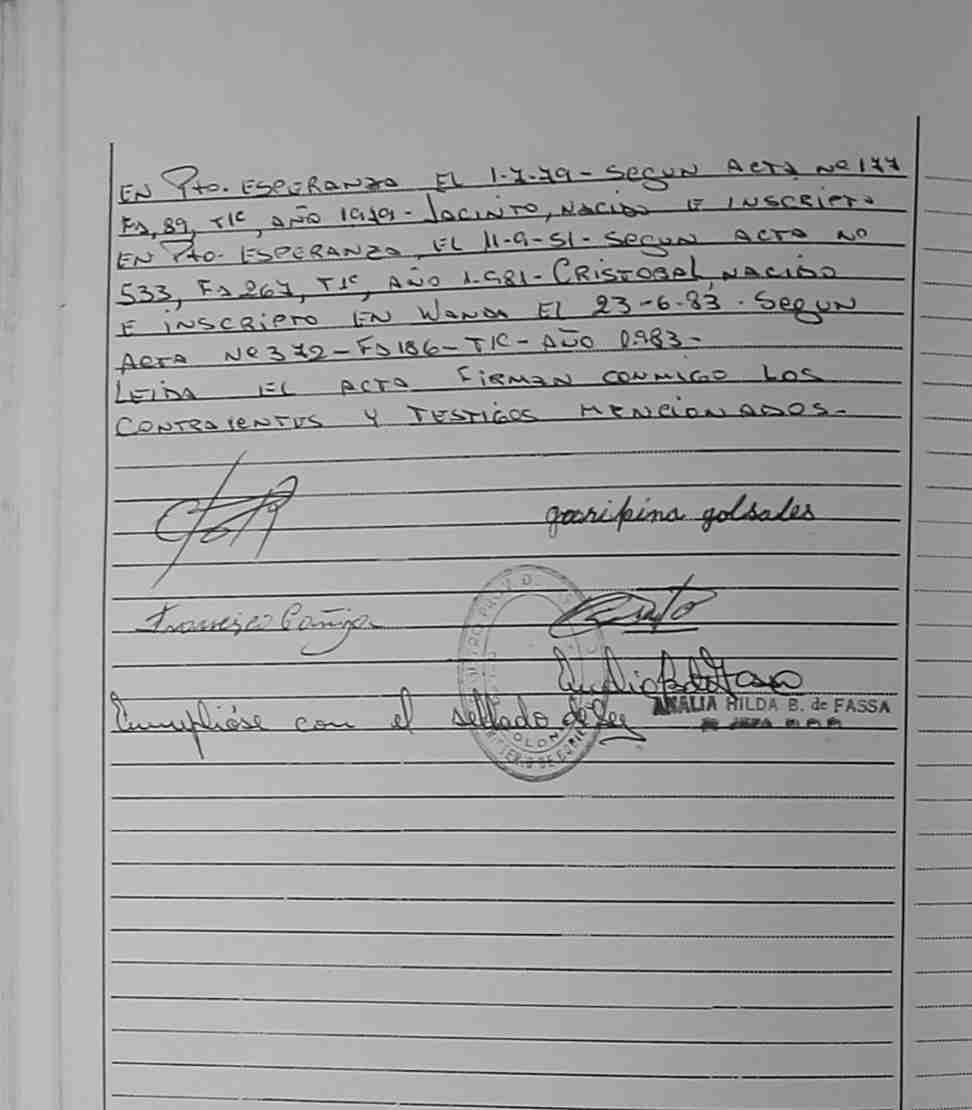 EN Pto. ESPERANZA EL 1-7-79- Segun ACTA Nº 177
Fº, 89, TIC, AÑO 1979- JACINTO, NACIDO E INSCRIPTO
EN Pto. ESPERANZA, EL 11-9-81- Segun ACTA NO
533, Fº 267, TIC, AÑO 1.981- CRISTOBAL, NACIDO
E INSCRIPTO EN WANDA EL 23-6-83. Segun
ACTA Nº 372-Fº 186-TIC- AÑO 1.983-
LEIDA EL ACTA FIRMAN CONMIGO LOS
CONTRAYENTES Y TESTIGOS MENCIONADOS-
garipina golsales
Francisco
Cumplióse con el sellado de Ley
ANALIA HILDA B. de FASSA